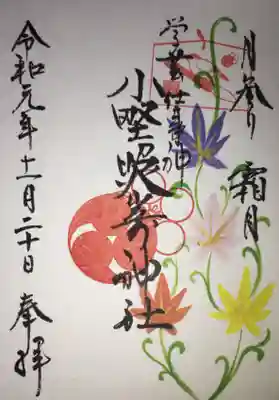 月参り 霜月
学芸仕事神
小野照崎神社
令和元年十一月二十日 奉拝